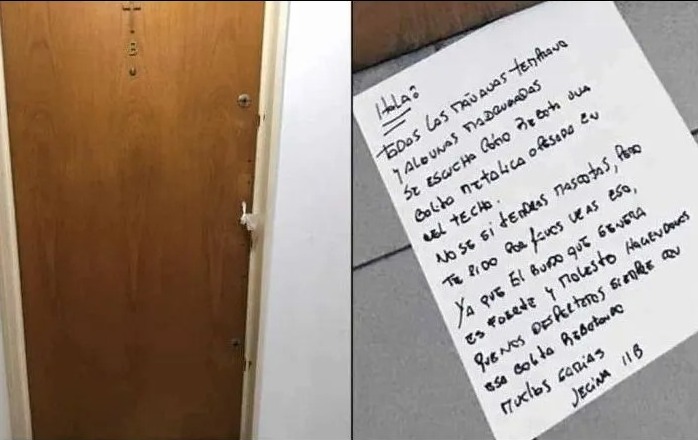 B
Hola?
TODAS LAS MAÑANAS TEMPRANO
Y ALGUNAS MADRUGADAS
SE ESCUCHA COMO REBOTA UNA
BOLITA METALICA O PESADA EN
EL TECHO.
NO SE SI TENDRAS MASCOTAS, PERO
TE PIDO POR FAVOR VEAS ESO,
YA QUE EL RUIDO QUE GENERA
ES FUERTE Y MOLESTO HACIENDONOS
QUE NOS DESPERTEMOS SIEMPRE CON
ESA BOLITA REBOTANDO
MUCHAS GACIAS
VECINA 11B